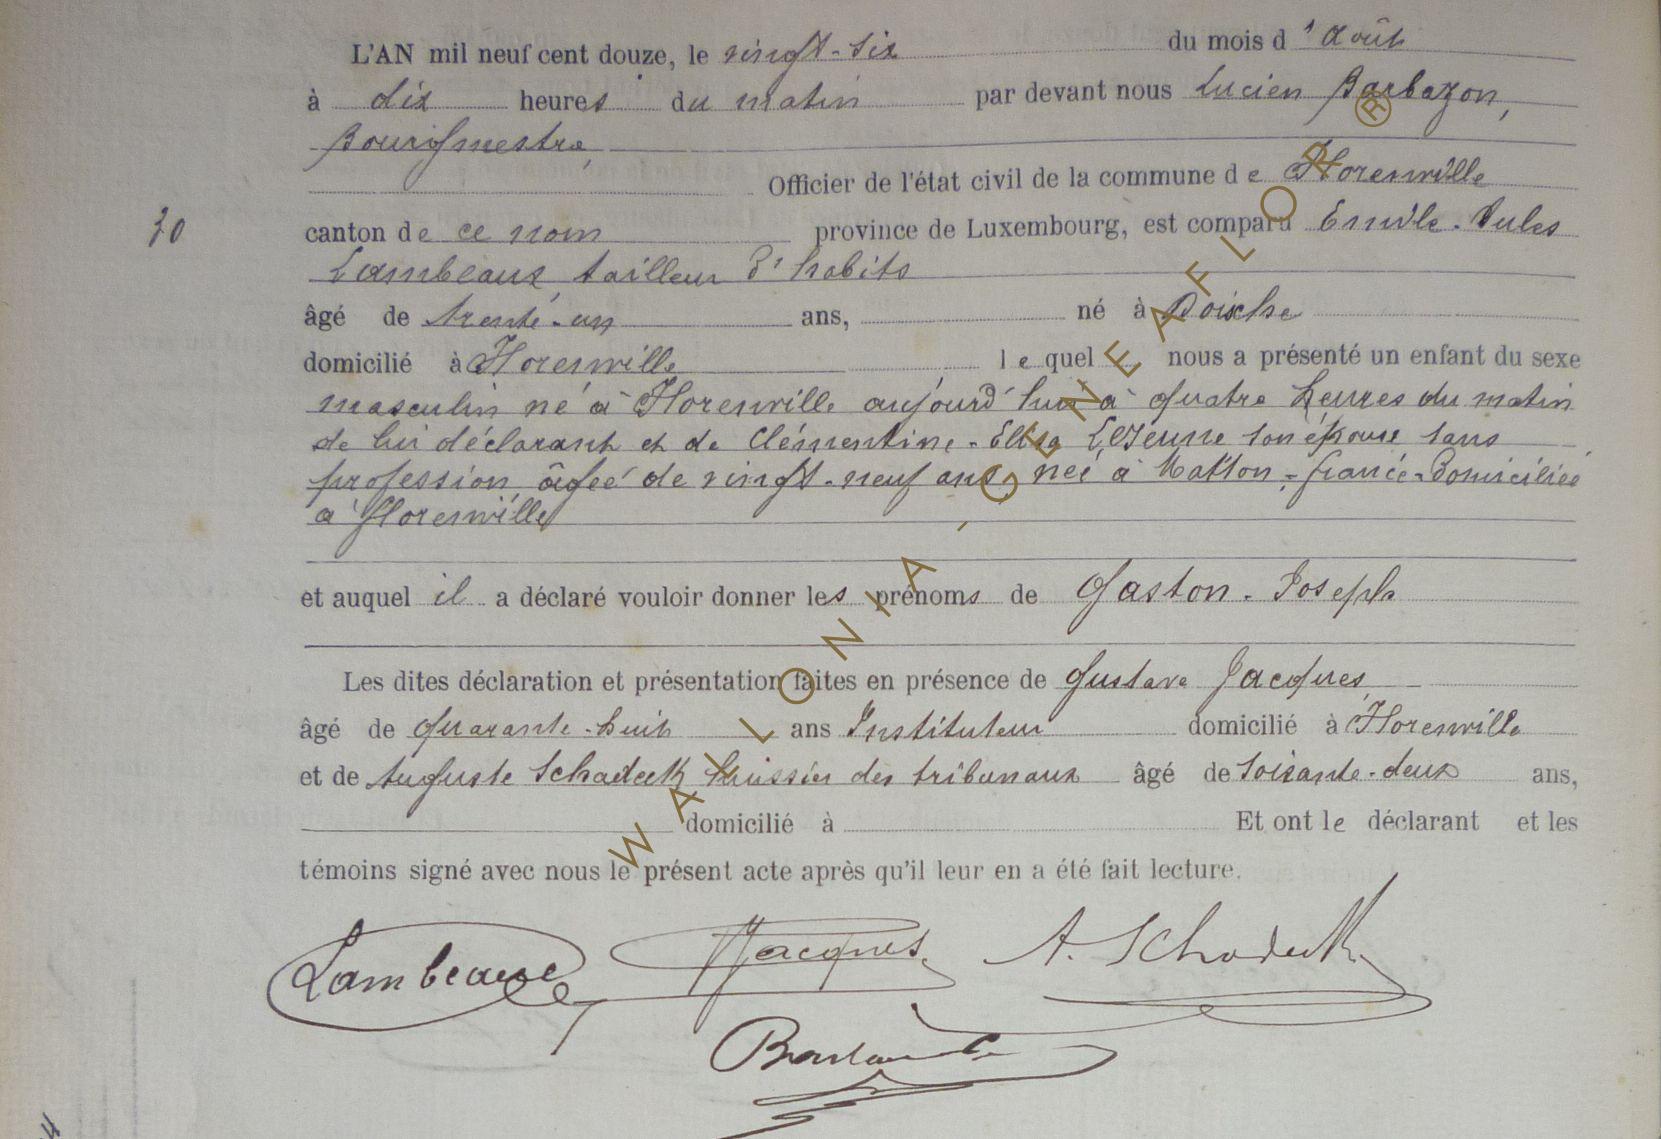 L'AN mil neuf cent douze, le vingt-six du mois d'Août
à dix heures du matin par devant nous Lucien Barbazon,
Bourgmestre,
Officier de l'état civil de la commune de Florenville
30 canton de ce nom province de Luxembourg, est comparu Emile-Jules
Lambeaux, tailleur d'habits
âgé de trente-un ans, né à Doische
domicilié à Florenville lequel nous a présenté un enfant du sexe
masculin né à Florenville aujourd'hui à quatre heures du matin
de lui déclarant et de Clémentine-Elisa LeJeune son épouse sans
profession, âgée de vingt-neuf ans, née à Matton-france-Domiciliée
à florenville
et auquel il a déclaré vouloir donner les prénoms de Gaston-Joseph
Les dites déclaration et présentation faites en présence de Gustave Jacques,
âgé de quarante-huit ans Instituteur domicilié à Florenville
et de Auguste Schadeck, huissier des tribunaux âgé de soixante-deux ans,
domicilié à Et ont le déclarant et les
témoins signé avec nous le présent acte après qu'il leur en a été fait lecture.
Lambeaux GJacques. A. Schadeck
WALLONIA - GENEAFLOR ®